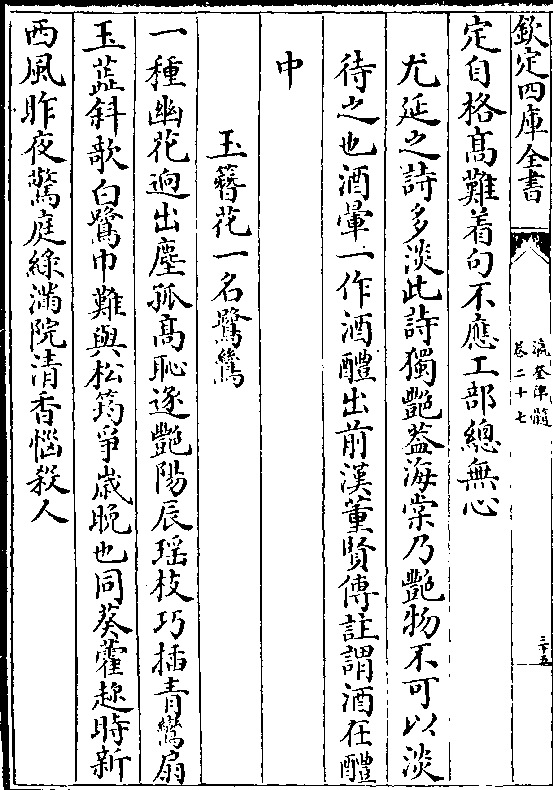 欽定四庫全書
瀛奎律髓
卷二十七
三十五
定自格髙難着句不應工部總無心
尤延之詩多淡此詩獨艷葢海棠乃艷物不可以淡
待之也酒暈一作酒醴出前漢董賢傳註謂酒在醴
中
玉簪花一名鷺鷥
一種幽花迥出塵孤髙恥逐艷陽辰瑶枝巧插青鸞扇
玉蕋斜欹白鷺巾難與松筠爭嵗晩也同葵藿趂時新
西風昨夜驚庭緑滿院清香惱殺人